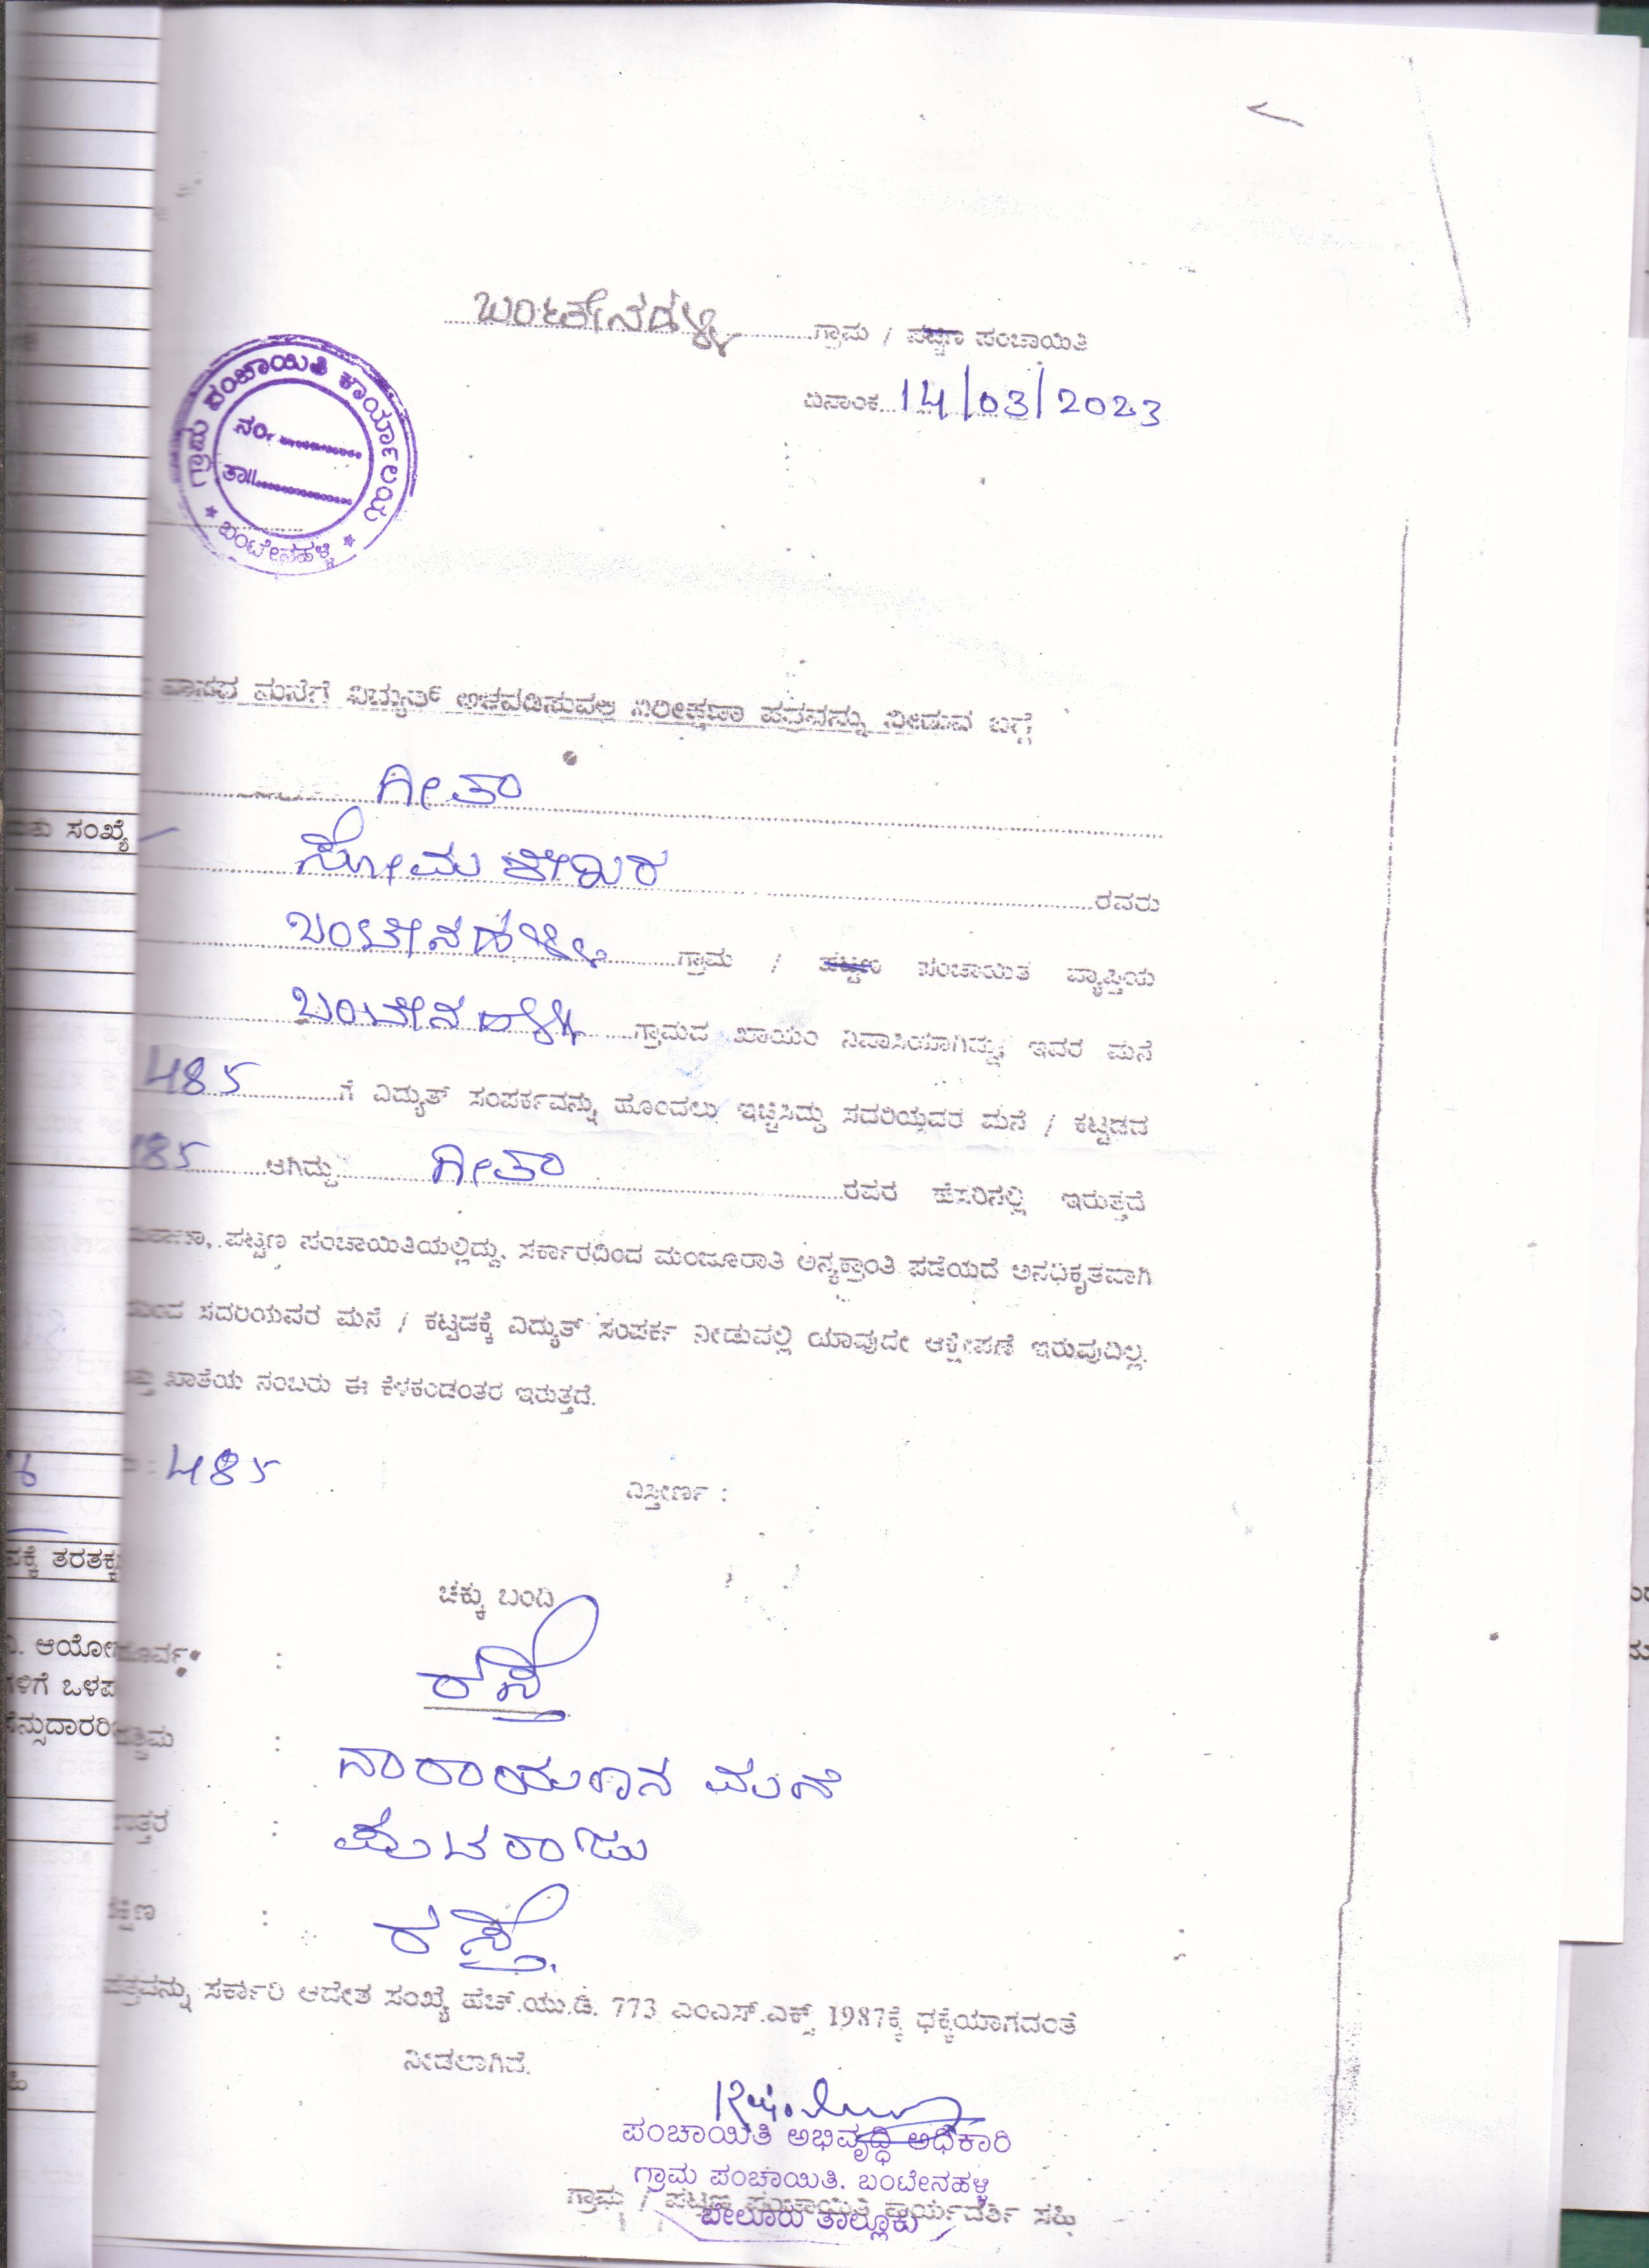 ಬಂಟೇನಹಳ್ಳಿ ಗ್ರಾಮ / ಪಟ್ಟಣ ಪಂಚಾಯಿತಿ
ದಿನಾಂಕ 14/03/2023
ಗ್ರಾಮ ಪಂಚಾಯಿತಿ ಕಾರ್ಯಾಲಯ
ನಂ.
ತಾ||
* ಬಂಟೇನಹಳ್ಳಿ *
ವಾಸದ ಮನೆಗೆ ವಿದ್ಯುತ್ ಅಳವಡಿಸುವಲ್ಲಿ ನಿರೀಕ್ಷಣಾ ಪತ್ರವನ್ನು ನೀಡುವ ಬಗ್ಗೆ
ಗೀತಾ
ಸಂಖ್ಯೆ
ಸೋಮಶೇಖರ ರವರು
ಬಂಟೇನಹಳ್ಳಿ ಗ್ರಾಮ / ಪಟ್ಟಣ ಪಂಚಾಯಿತ ವ್ಯಾಪ್ತಿಯ
ಬಂಟೇನಹಳ್ಳಿ ಗ್ರಾಮದ ಖಾಯಂ ನಿವಾಸಿಯಾಗಿದ್ದು, ಇವರ ಮನೆ
485 ಗೆ ವಿದ್ಯುತ್ ಸಂಪರ್ಕವನ್ನು ಹೊಂದಲು ಇಚ್ಚಿಸಿದ್ದು ಸದರಿಯವರ ಮನೆ / ಕಟ್ಟಡದ
485 ಆಗಿದ್ದು ಗೀತಾ ರವರ ಹೆಸರಿನಲ್ಲಿ ಇರುತ್ತದೆ
ಪಟ್ಟಣ ಪಂಚಾಯಿತಿಯಲ್ಲಿದ್ದು, ಸರ್ಕಾರದಿಂದ ಮಂಜೂರಾತಿ ಅನ್ಯಕ್ರಾಂತಿ ಪಡೆಯದೆ ಅನಧಿಕೃತವಾಗಿ
ಸದರಿಯವರ ಮನೆ / ಕಟ್ಟಡಕ್ಕೆ ವಿದ್ಯುತ್ ಸಂಪರ್ಕ ನೀಡುವಲ್ಲಿ ಯಾವುದೇ ಆಕ್ಷೇಪಣೆ ಇರುವುದಿಲ್ಲ.
ಖಾತೆಯ ನಂಬರು ಈ ಕೆಳಕಂಡಂತರ ಇರುತ್ತದೆ.
: 485 ವಿಸ್ತೀರ್ಣ :
ತರತಕ್ಕ
ಚಕ್ಕು ಬಂದಿ
ಪೂರ್ವ : ರಸ್ತೆ
ಪಶ್ಚಿಮ : ನಾರಾಯಣನ ಮನೆ
ಉತ್ತರ : ಪುಟರಾಜು
ದಕ್ಷಿಣ : ರಸ್ತೆ.
ಪತ್ರವನ್ನು ಸರ್ಕಾರಿ ಆದೇಶ ಸಂಖ್ಯೆ ಹೆಚ್.ಯು.ಡಿ. 773 ಎಂಎಸ್.ಎಕ್ಸ್ 1987ಕ್ಕೆ ಧಕ್ಕೆಯಾಗದಂತೆ
ನೀಡಲಾಗಿದೆ.
ಪಂಚಾಯಿತಿ ಅಭಿವೃದ್ಧಿ ಅಧಿಕಾರಿ
ಗ್ರಾಮ ಪಂಚಾಯಿತಿ. ಬಂಟೇನಹಳ್ಳಿ
ಗ್ರಾಮ / ಪಟ್ಟಣ ಪಂಚಾಯಿತಿ ಕಾರ್ಯದರ್ಶಿ ಸಹಿ
ಬೇಲೂರು ತಾಲ್ಲೂಕು